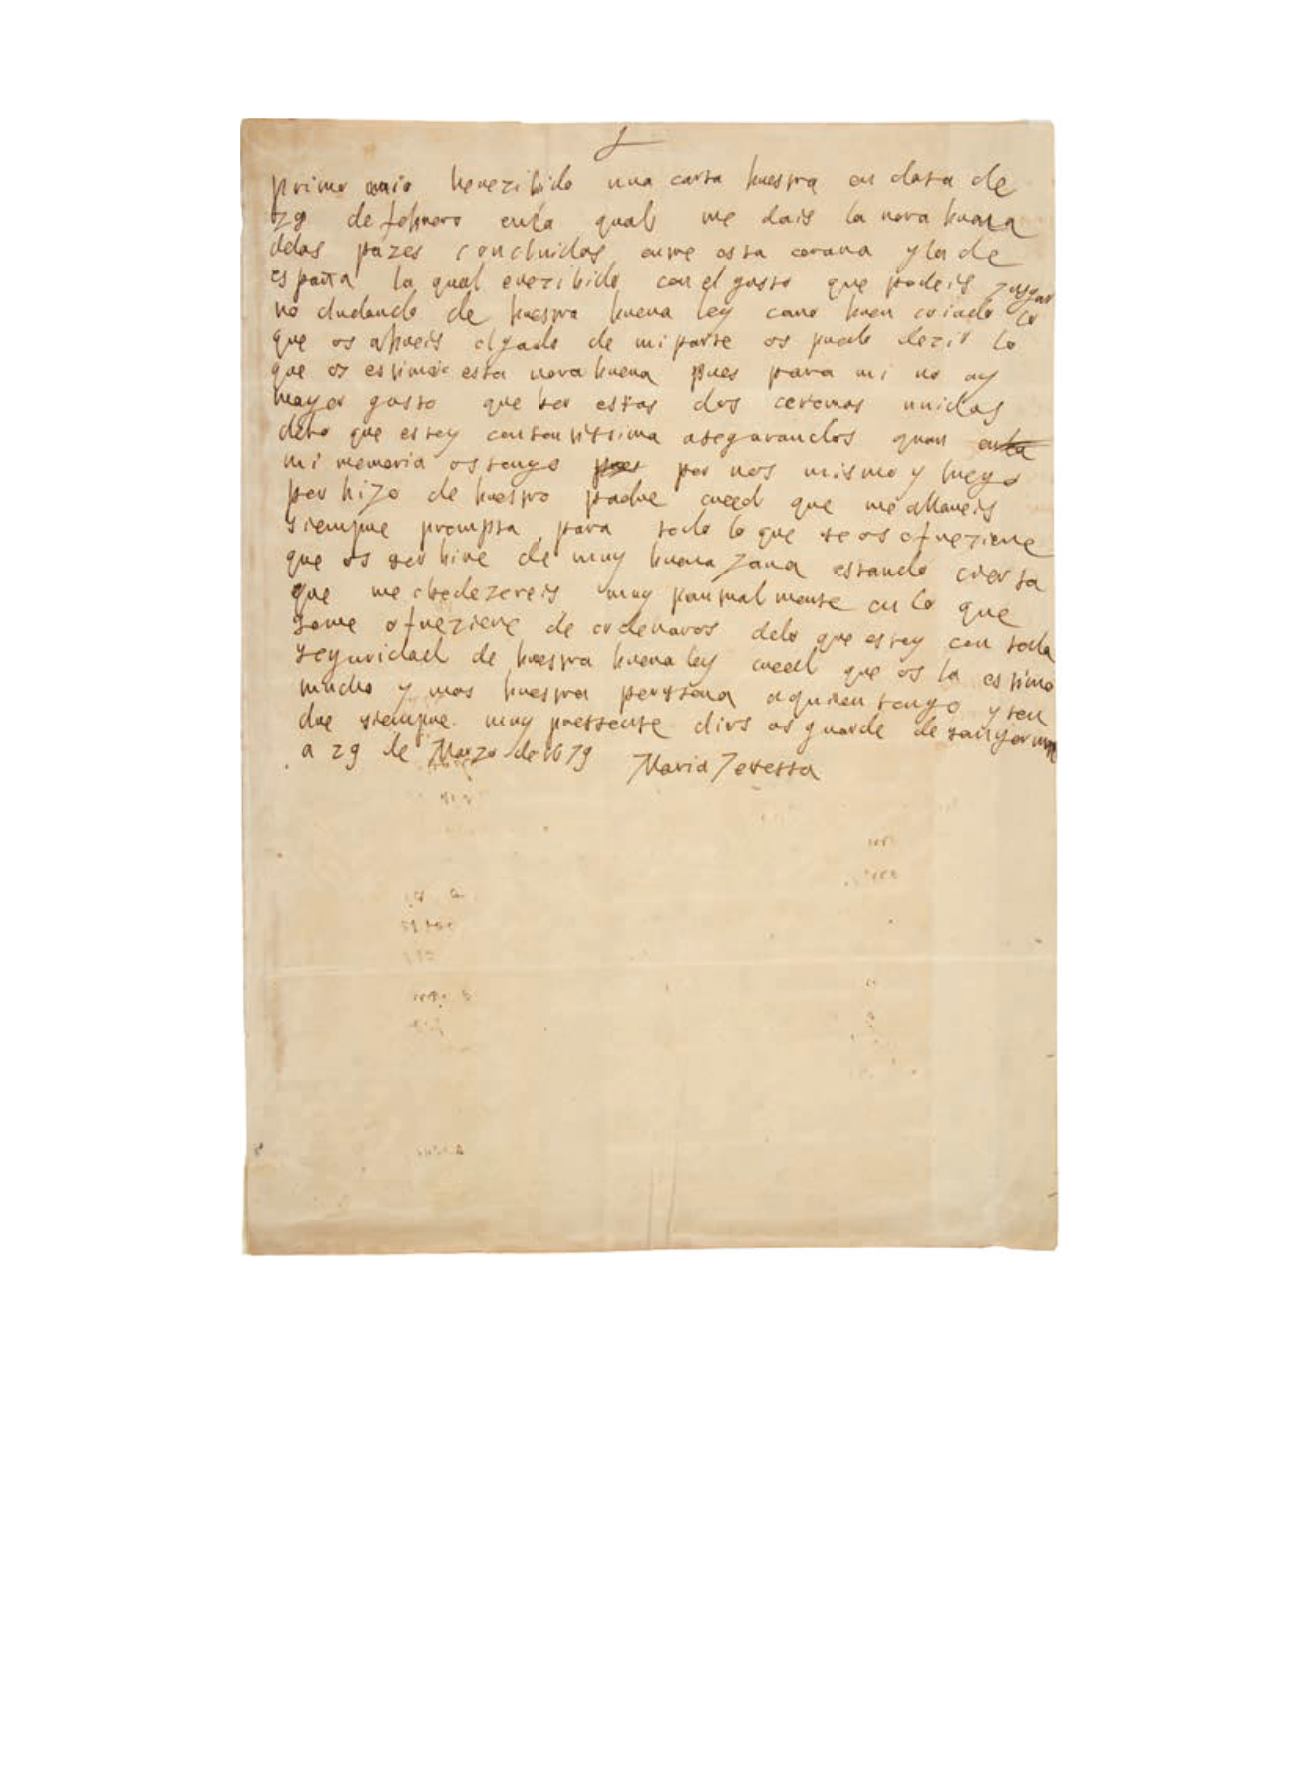 primo mio herezibido una carta huestra en data de
29 de febrero enla qual me dais la nora buena
delas pazes concluidas entre esta corona y la de
españa la qual erezibido con el gusto que podeis juzgar
no dudando de huestra buena ley como buen criado lo
que os abreis olgado de mi parte os puedo dezir lo
que os estimo esta norabuena pues para mi no ay
mayor gusto que ber estas dos coronas unidas
delo que estoy contentissima asegurandoos quan
mi memoria os tengo por vos mismo y luego
por hijo de huestro padre creed que me allareis
siempre prompta para todo lo que se os ofreziere
que os serbire de muy buena gana estando cierta
que me obedezereis muy puntualmente en lo que
seme ofreziere de ordenaros delo que estoy con toda
seguridad de huestra buena ley creed que os la estimo
mucho y mas huestra perssona aquien tengo y ten
dre siempre muy pressente dios os guarde de
a 29 de Marzo de 1679 Maria Teressa